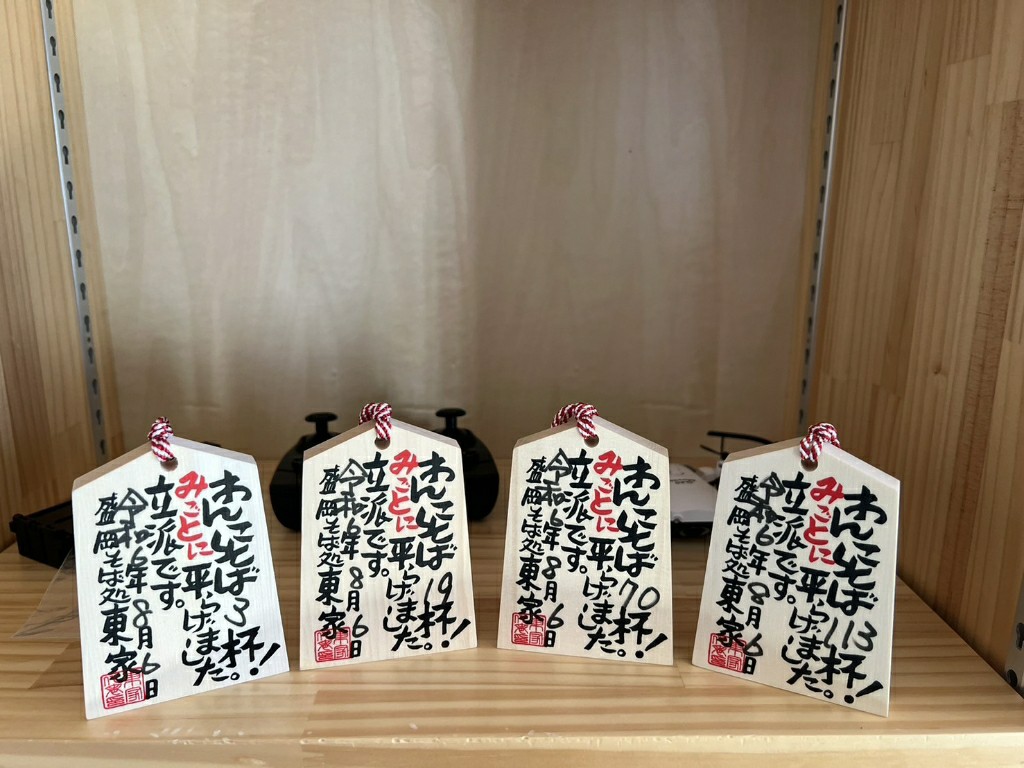 わんこそば3杯!
みごとに平らげました。
立派です。
令和6年8月6日
盛岡そば処東家
わんこそば19杯!
みごとに平らげました。
立派です。
令和6年8月6日
盛岡そば処東家
わんこそば70杯!
みごとに平らげました。
立派です。
令和6年8月6日
盛岡そば処東家
わんこそば113杯!
みごとに平らげました。
立派です。
令和6年8月6日
盛岡そば処東家